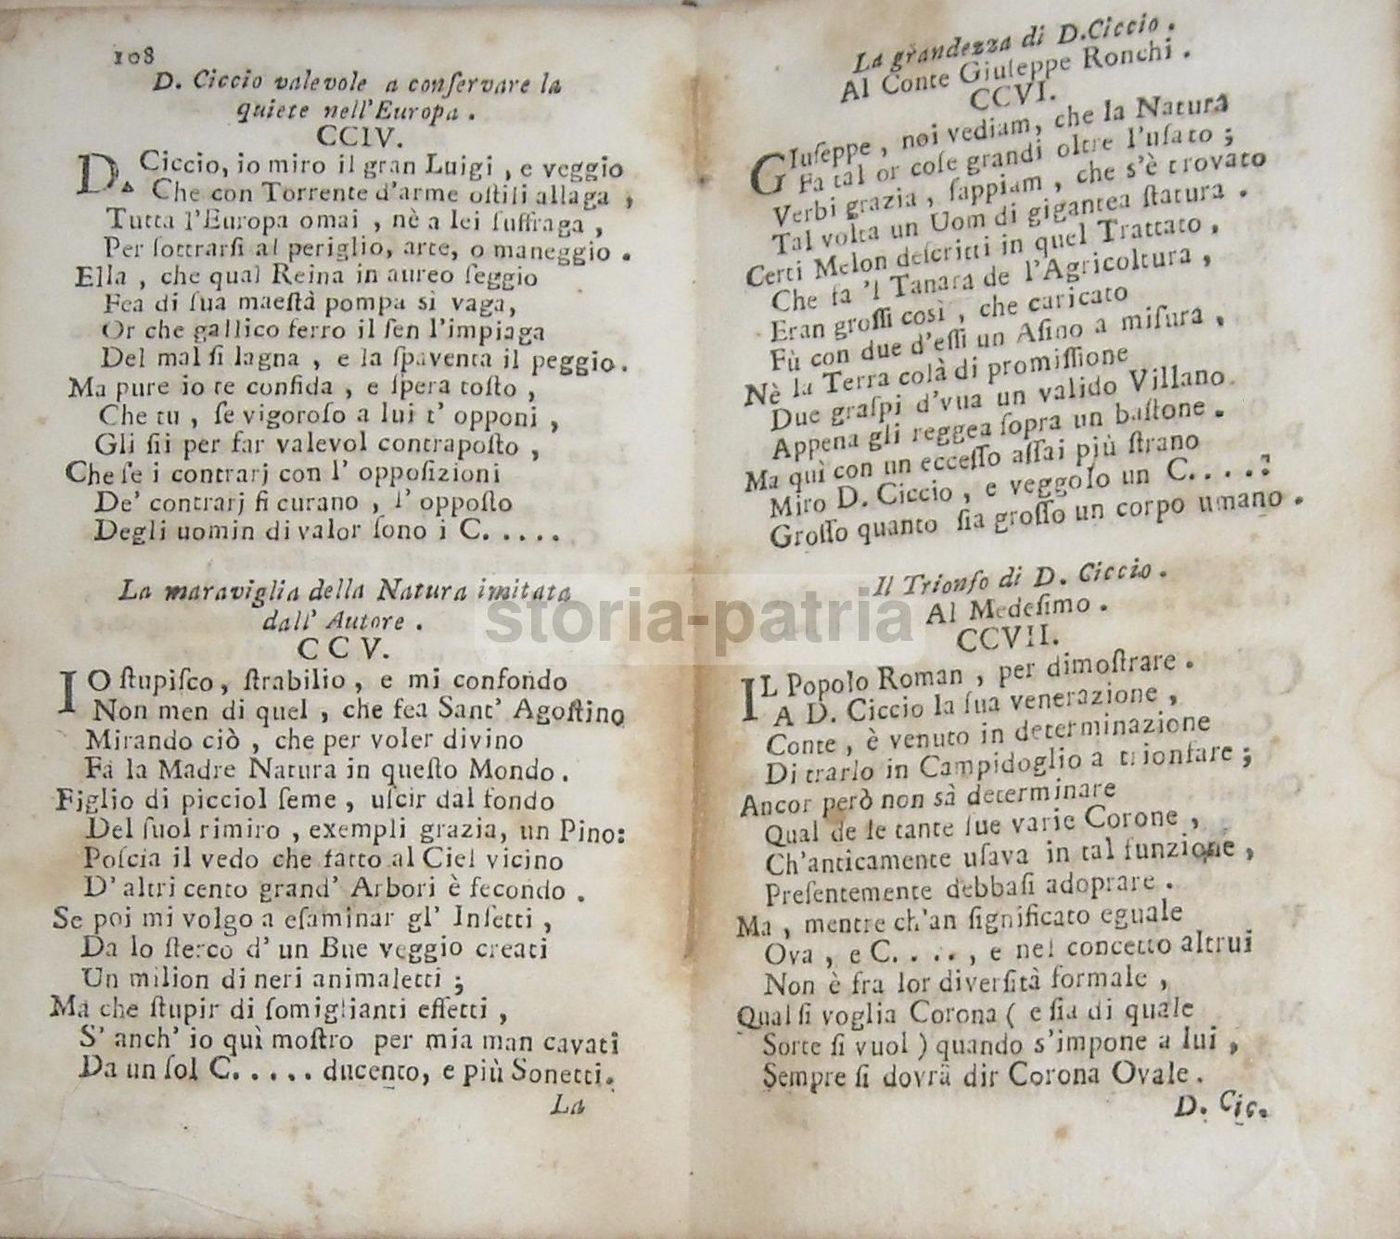 108
D. Ciccio valevole a conſervare la
quiete nell'Europa.
CCIV.
D. Ciccio, io miro il gran Luigi, e veggio
Che con Torrente d'arme oſtili allaga,
Tutta l'Europa omai, nè a lei ſuffraga,
Per ſottrarſi al periglio, arte, o maneggio.
Ella, che qual Reina in aureo ſeggio
Fea di ſua maeſtà pompa sì vaga,
Or che gallico ferro il ſen l'impiaga
Del mal ſi lagna, e la ſpaventa il peggio.
Ma pure io te confida, e ſpera toſto,
Che tu, ſe vigoroſo a lui t' opponi,
Gli ſii per far valevol contrapoſto,
Che ſe i contrarj con l' oppoſizioni
De' contrarj ſi curano, l' oppoſto
Degli uomin di valor ſono i C.....
La maraviglia della Natura imitata
dall' Autore.
CCV.
IO ſtupiſco, ſtrabilio, e mi confondo
Non men di quel, che fea Sant' Agoſtino
Mirando ciò, che per voler divino
Fà la Madre Natura in queſto Mondo.
Figlio di picciol ſeme, uſcir dal fondo
Del ſuol rimiro, exempli grazia, un Pino:
Poſcia il vedo che fatto al Ciel vicino
D' altri cento grand' Arbori è fecondo.
Se poi mi volgo a eſaminar gl' Inſetti,
Da lo ſterco d' un Bue veggio creati
Un milion di neri animaletti;
Ma che ſtupir di ſomiglianti effetti,
S' anch' io quì moſtro per mia man cavati
Da un ſol C..... ducento, e più Sonetti.
La
La grandezza di D. Ciccio.
Al Conte Giuſeppe Ronchi.
CCVI.
GIuſeppe, noi vediam, che la Natura
Fa tal or coſe grandi oltre l'uſato;
Verbi grazia, ſappiam, che s'è trovato
Tal volta un Uom di gigantea ſtatura.
Certi Melon deſcritti in quel Trattato,
Che fa 'l Tanara de l'Agricoltura,
Eran groſſi così, che caricato
Fù con due d'eſſi un Aſino a miſura,
Nè la Terra colà di promiſſione
Due graſpi d'vua un valido Villano
Appena gli reggea ſopra un baſtone.
Ma quì con un ecceſſo aſſai pjù ſtrano
Miro D. Ciccio, e veggoſo un C....:
Groſſo quanto ſia groſſo un corpo umano.
Il Trionfo di D. Ciccio.
Al Medeſimo.
CCVII.
IL Popolo Roman, per dimoſtrare.
A D. Ciccio la ſua venerazione,
Conte, è venuto in determinazione
Di trarlo in Campidoglio a trionfare;
Ancor però non sà determinare
Qual de le tante ſue varie Corone,
Ch'anticamente uſava in tal funzione,
Preſentemente debbaſi adoprare.
Ma, mentre ch'an ſignificato eguale
Ova, e C...., e nel concetto altrui
Non è fra lor diverſità formale,
Qual ſi voglia Corona (e ſia di quale
Sorte ſi vuol) quando s'impone a lui,
Sempre ſi dovrà dir Corona Ovale.
D. Cic.
storia-patria